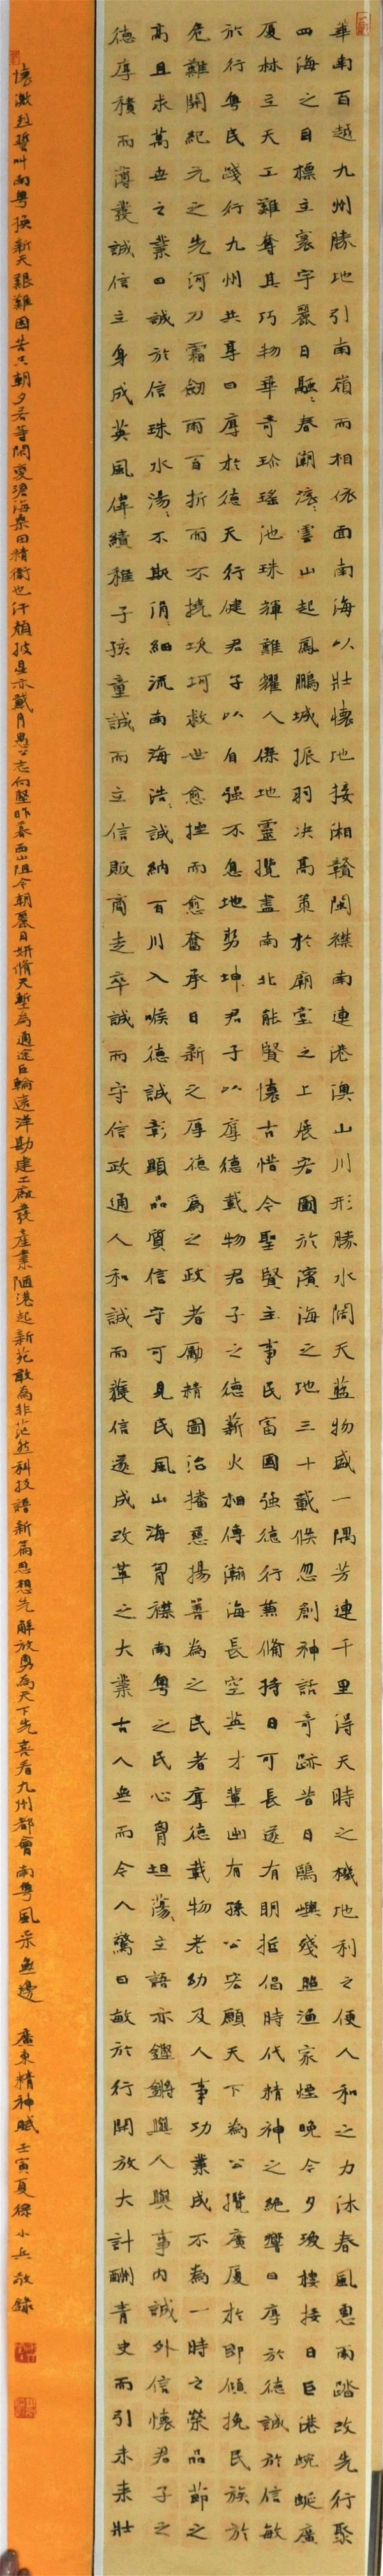 華南百越九州勝地引南嶺而相依面南海以壯懷地接湘贛閩襟南連港澳山川形勝水闊天藍物盛一隅芳連千里得天時之機地利之便人和之力沐春風惠雨踏改先行聚
四海之目標主寰宇麗日騕春潮滾雲山起鳳鵬城振羽決高策於廟堂之上展宏圖於濱海之地三十載倏忽創神話奇跡昔日鷗嶼殘照漁家煙晚今夕瓊樓接日巨港蜿蜒廣
厦林立天工難奪其巧物華奇珍瑤池珠輝難耀人傑地靈攬盡南北能賢懷古惜今聖賢主事民富國強德行兼脩持日可長遂有明哲倡時代精神之絕響曰厚於德誠於信敏
於行粵民踐行九州共享曰厚於德天行健君子以自强不息地勢坤君子以厚德載物君子之德薪火相傳瀚海長空英才輩出有孫公宏願天下為公攬廣厦於即傾挽民族於
危難開紀元之先河刀霜劍雨百折而不撓坎坷救世愈挫而愈奮承日新之厚德為之政者勵精圖治播惠揚善為之民者厚德載物老幼及人事功業成不為一時之榮品節之
高且求萬世之業曰誠於信珠水湯不斯涓細流南海浩誠納百川入喉德誠彰顯品質信守可見民風山海胷襟南粵之民心胷坦蕩主語亦鏗鏘與人與事內誠外信懷君子之
德厚積而薄發誠信立身成英風偉績稚子孩童誠而立信販商走卒誠而守信政通人和誠而獲信遂成改革之大業古人無而今人驚曰敏於行開放大計酬青史而引未来壯
懷激烈誓叫南粵換新天艱難困苦只朝夕若等閑變滄海桑田精衛也汗顏披星亦戴月愚公志向堅昨暮西山阻今朝麗日妍脩天塹為通途巨輪遠洋勘建工廠發產業陋港起新苑敢為非茫然科技譜新篇思想先解放勇為天下先真看九州都會南粵風采無邊 廣東精神賦壬寅夏徐小兵敬錄